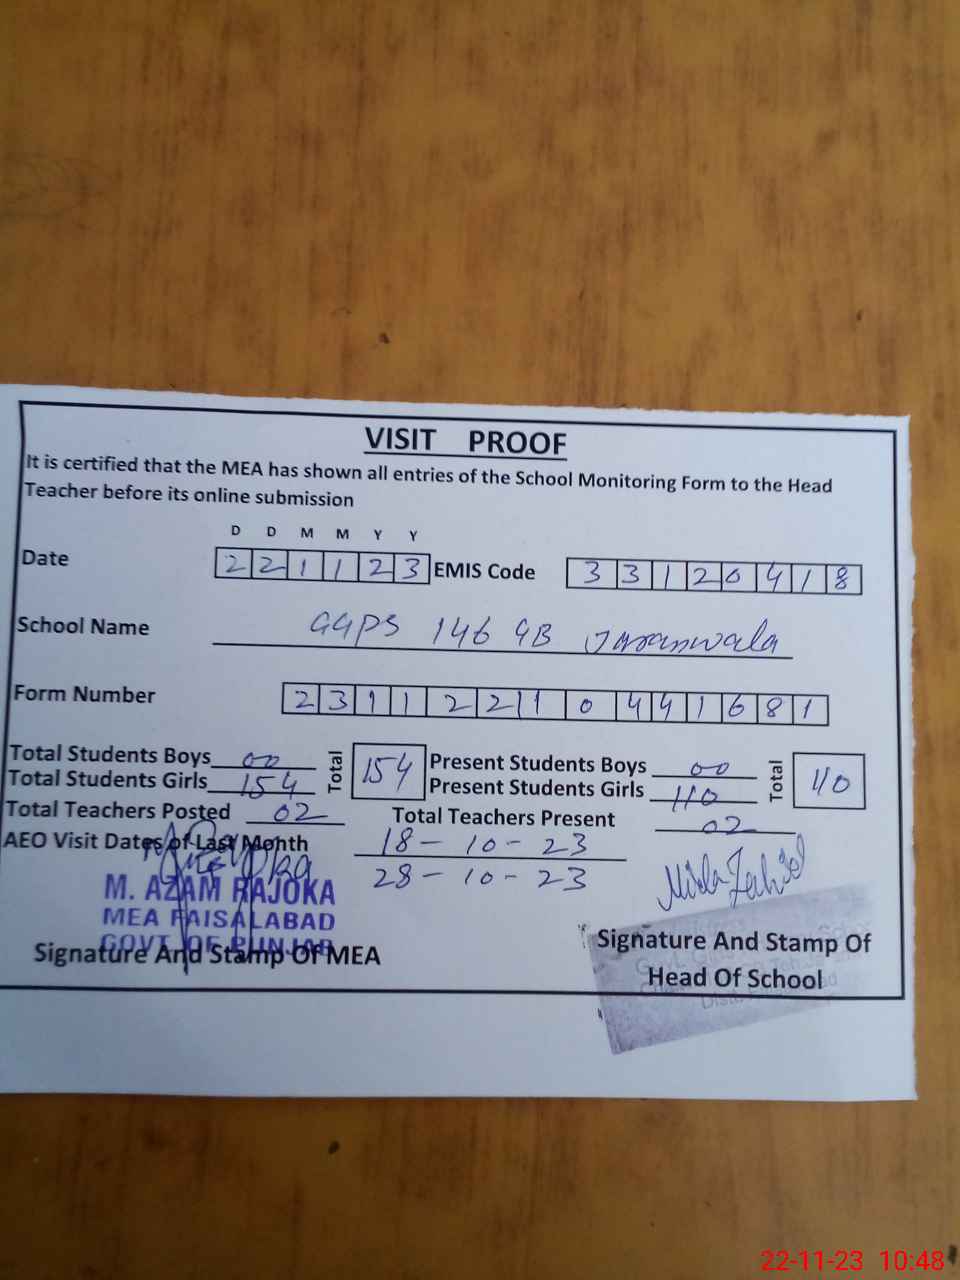 VISIT PROOF
It is certified that the MEA has shown all entries of the School Monitoring Form to the Head
Teacher before its online submission
D D M M Y Y
Date 2 2 1 1 2 3 EMIS Code 3 3 1 2 0 4 1 8
School Name GGPS 146 GB Jaranwala
Form Number 2 3 1 1 2 2 1 1 0 4 4 1 6 8 1
Total Students Boys 00 Total 154 Present Students Boys 00 Total 110
Total Students Girls 154 Present Students Girls 110
Total Teachers Posted 02 Total Teachers Present 02
AEO Visit Dates of Last Month 18 - 10 - 23
28 - 10 - 23
M. AZAM RAJOKA
MEA FAISALABAD
GOVT OF PUNJAB
Signature And Stamp Of MEA
Signature And Stamp Of
Head Of School
22-11-23 10:48